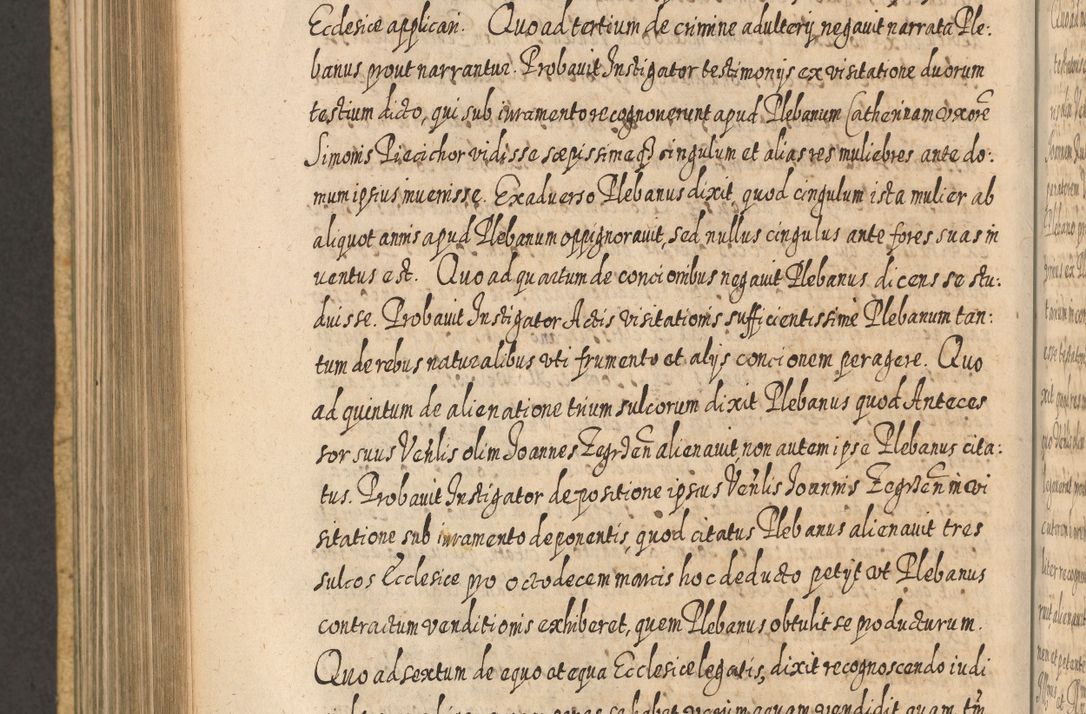 Ecclesiæ applicari. Quo ad tertium de crimine adulterij negauit narrata Ple:
banus prout narrantur. Probauit Instigator testimonijs ex visitatione duorum
testium dicto, qui sub iuramento recognouerunt apud Plebanum Catherinam vxorē
Simonis Piecichor vidisse sæpissime qꝫ cingulum et alias res muliebres ante do:
mum ipsius inuenisse. Ex aduerso Plebanus dixit, quod cingulum ista mulier ab
aliquot annis apud Plebanum oppignorauit, sed nullus cingulus ante fores suas in
uentus est. Quo ad quartum de concionibus negauit Plebanus dicens se stu:
duisse. Probauit Instigator Actis visitationis sufficientissime Plebanum tan:
tum de rebus naturalibus vti frumento et alijs concionem peragere. Quo
ad quintum de alienatione trium sulcorum dixit Plebanus quod Anteces
sor suus Venlis olim Joannes Zegrden alienauit, non autem ipse Plebanus cita:
tus. Probauit Instigator depositione ipsius Venlis Joannis Zegrden in vi
sitatione sub iuramento deponentis, quod citatus Plebanus alienauit tres
sulcos Ecclesiæ pro octodecem marcis hoc deducto petijt vt Plebanus
contractum venditionis exhiberet, quem Plebanus obtulit se producturum.
Quo ad sextum de equo et equa Ecclesiæ legatis, dixit recognoscendo iudi